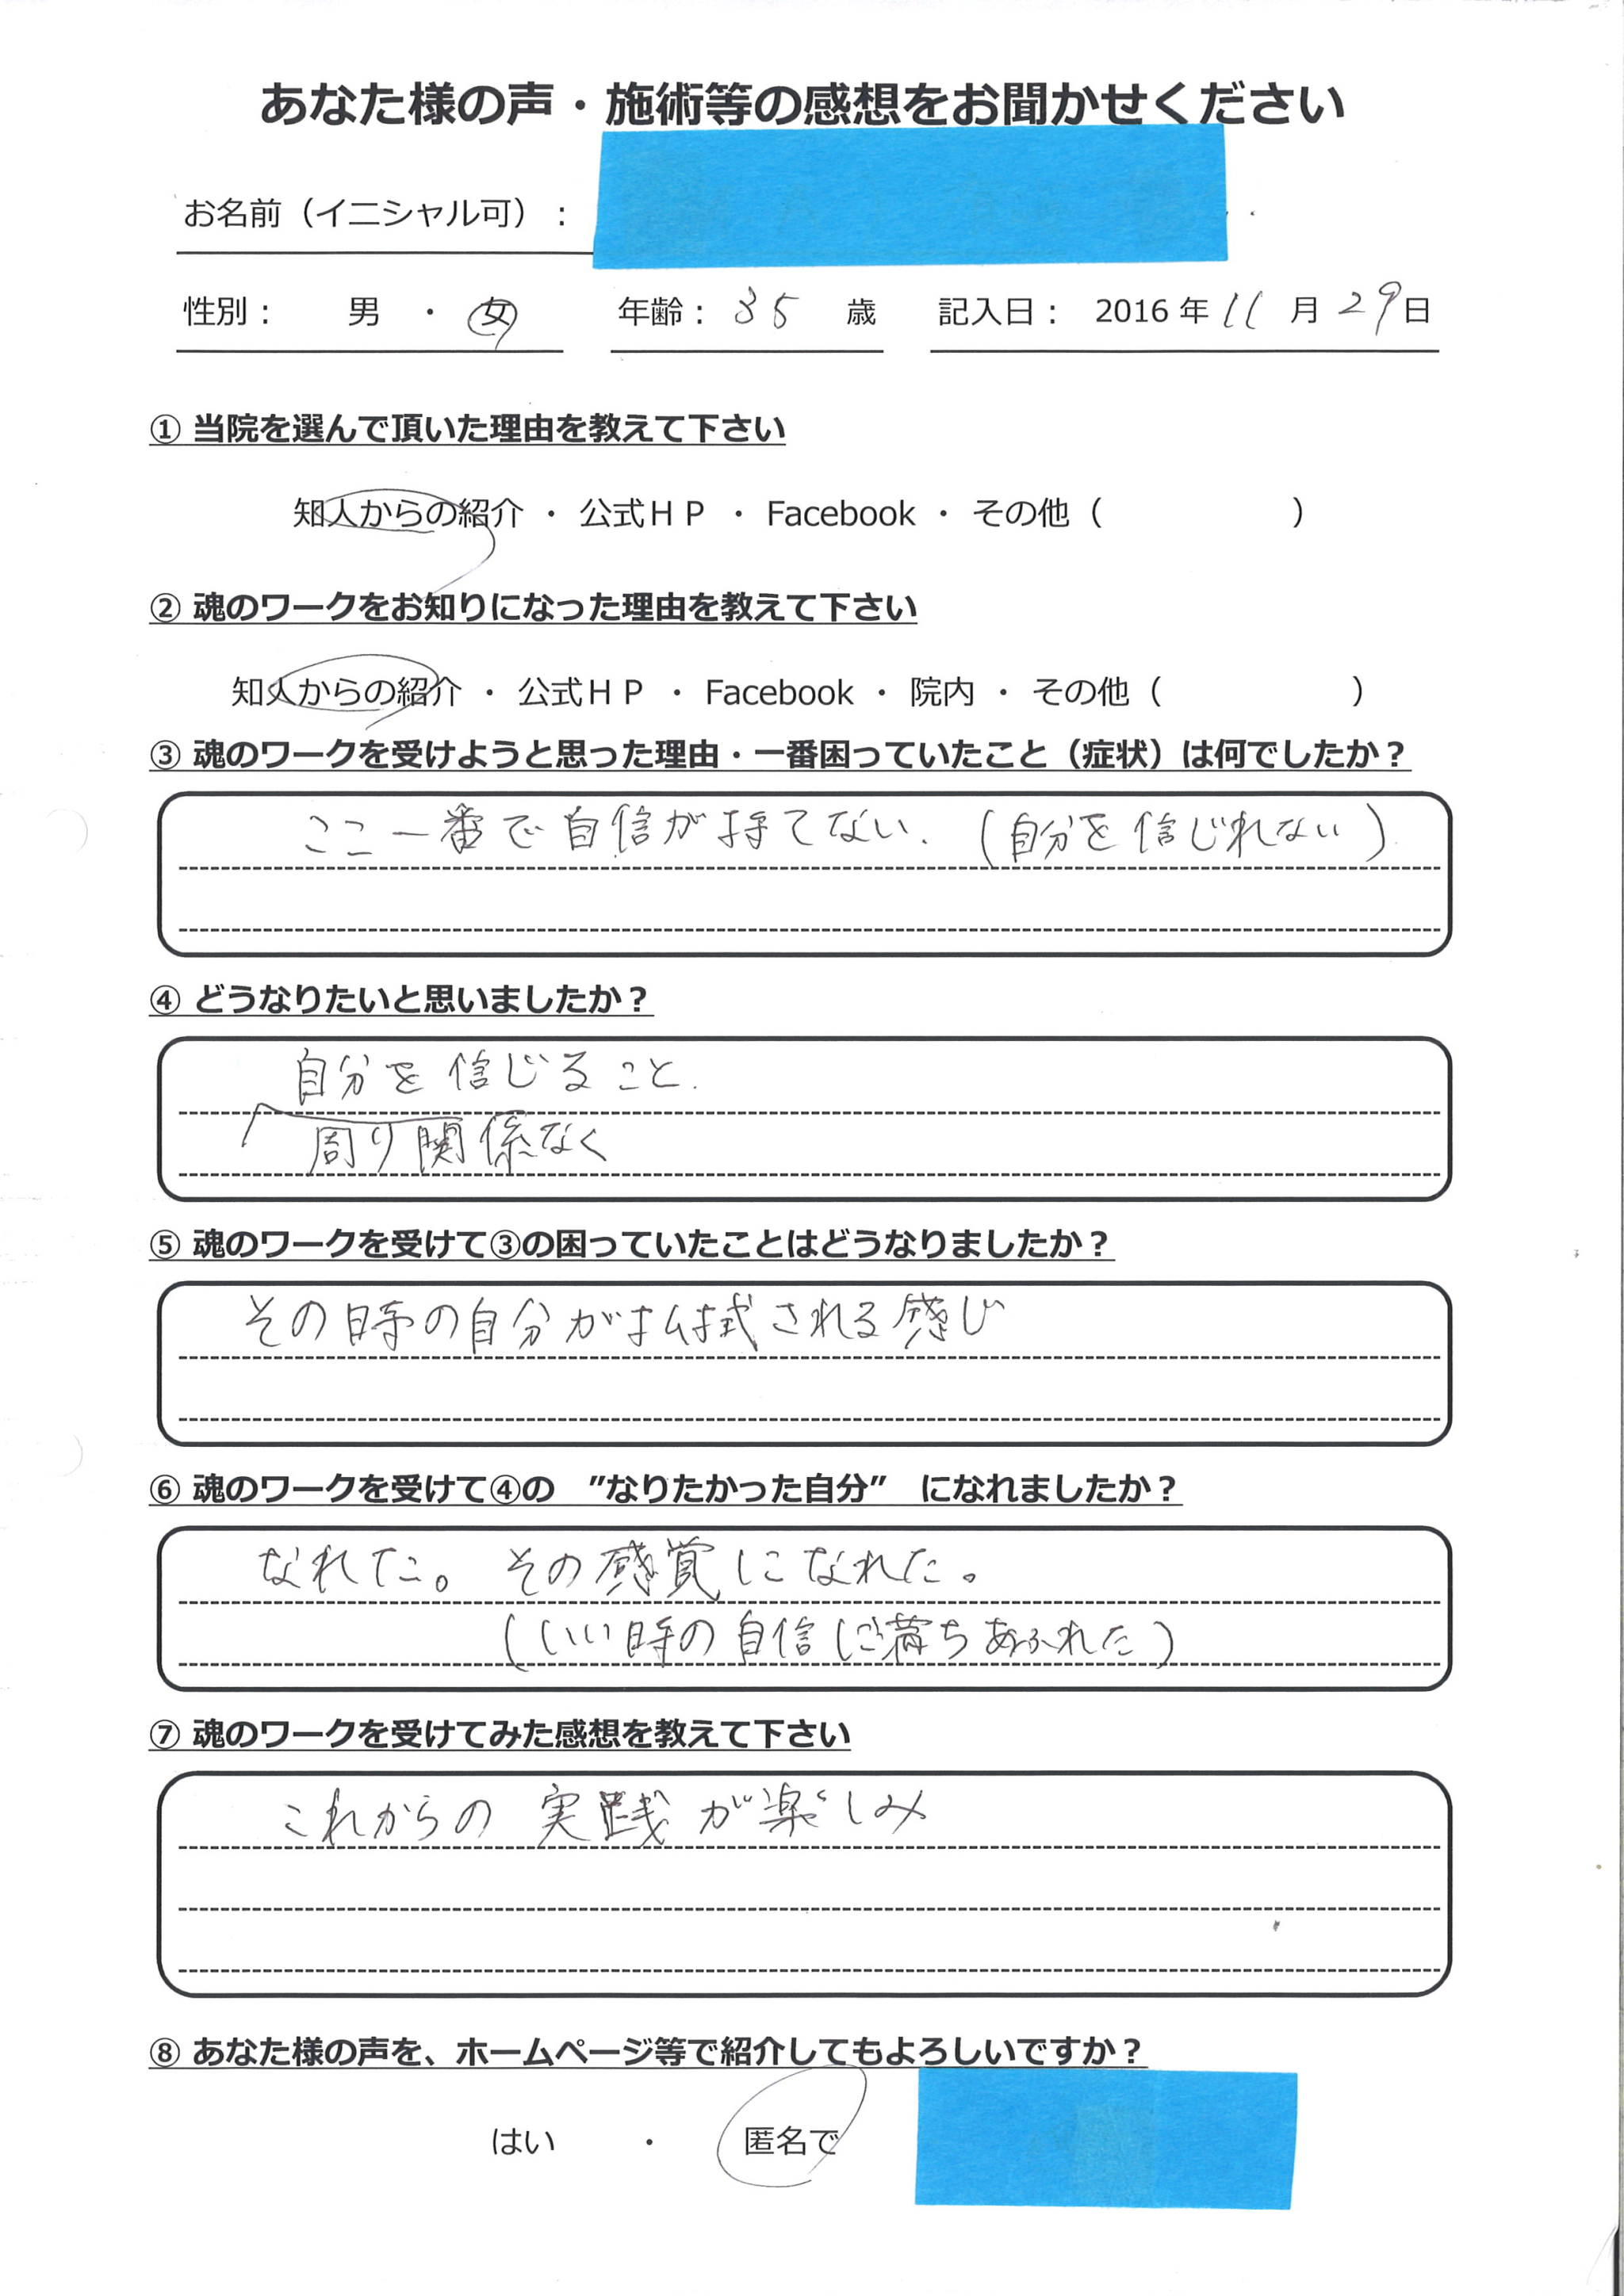 あなた様の声・施術等の感想をお聞かせください
お名前（イニシャル可）：
性別： 男 ・ 女 年齢： 35 歳 記入日： 2016 年 11 月 29 日
① 当院を選んで頂いた理由を教えて下さい
知人からの紹介 ・ 公式ＨＰ ・ Facebook ・ その他（ ）
② 魂のワークをお知りになった理由を教えて下さい
知人からの紹介 ・ 公式ＨＰ ・ Facebook ・ 院内 ・ その他（ ）
③ 魂のワークを受けようと思った理由・一番困っていたこと（症状）は何でしたか？
ここ一番で自信が持てない. (自分を信じれない)
④ どうなりたいと思いましたか？
自分を信じること.
周り関係なく
⑤ 魂のワークを受けて③の困っていたことはどうなりましたか？
その時の自分が払拭される感じ
⑥ 魂のワークを受けて④の ”なりたかった自分” になれましたか？
なれた。 その感覚になれた。
(いい時の自信に満ちあふれた)
⑦ 魂のワークを受けてみた感想を教えて下さい
これからの実践が楽しみ
⑧ あなた様の声を、ホームページ等で紹介してもよろしいですか？
はい ・ 匿名で